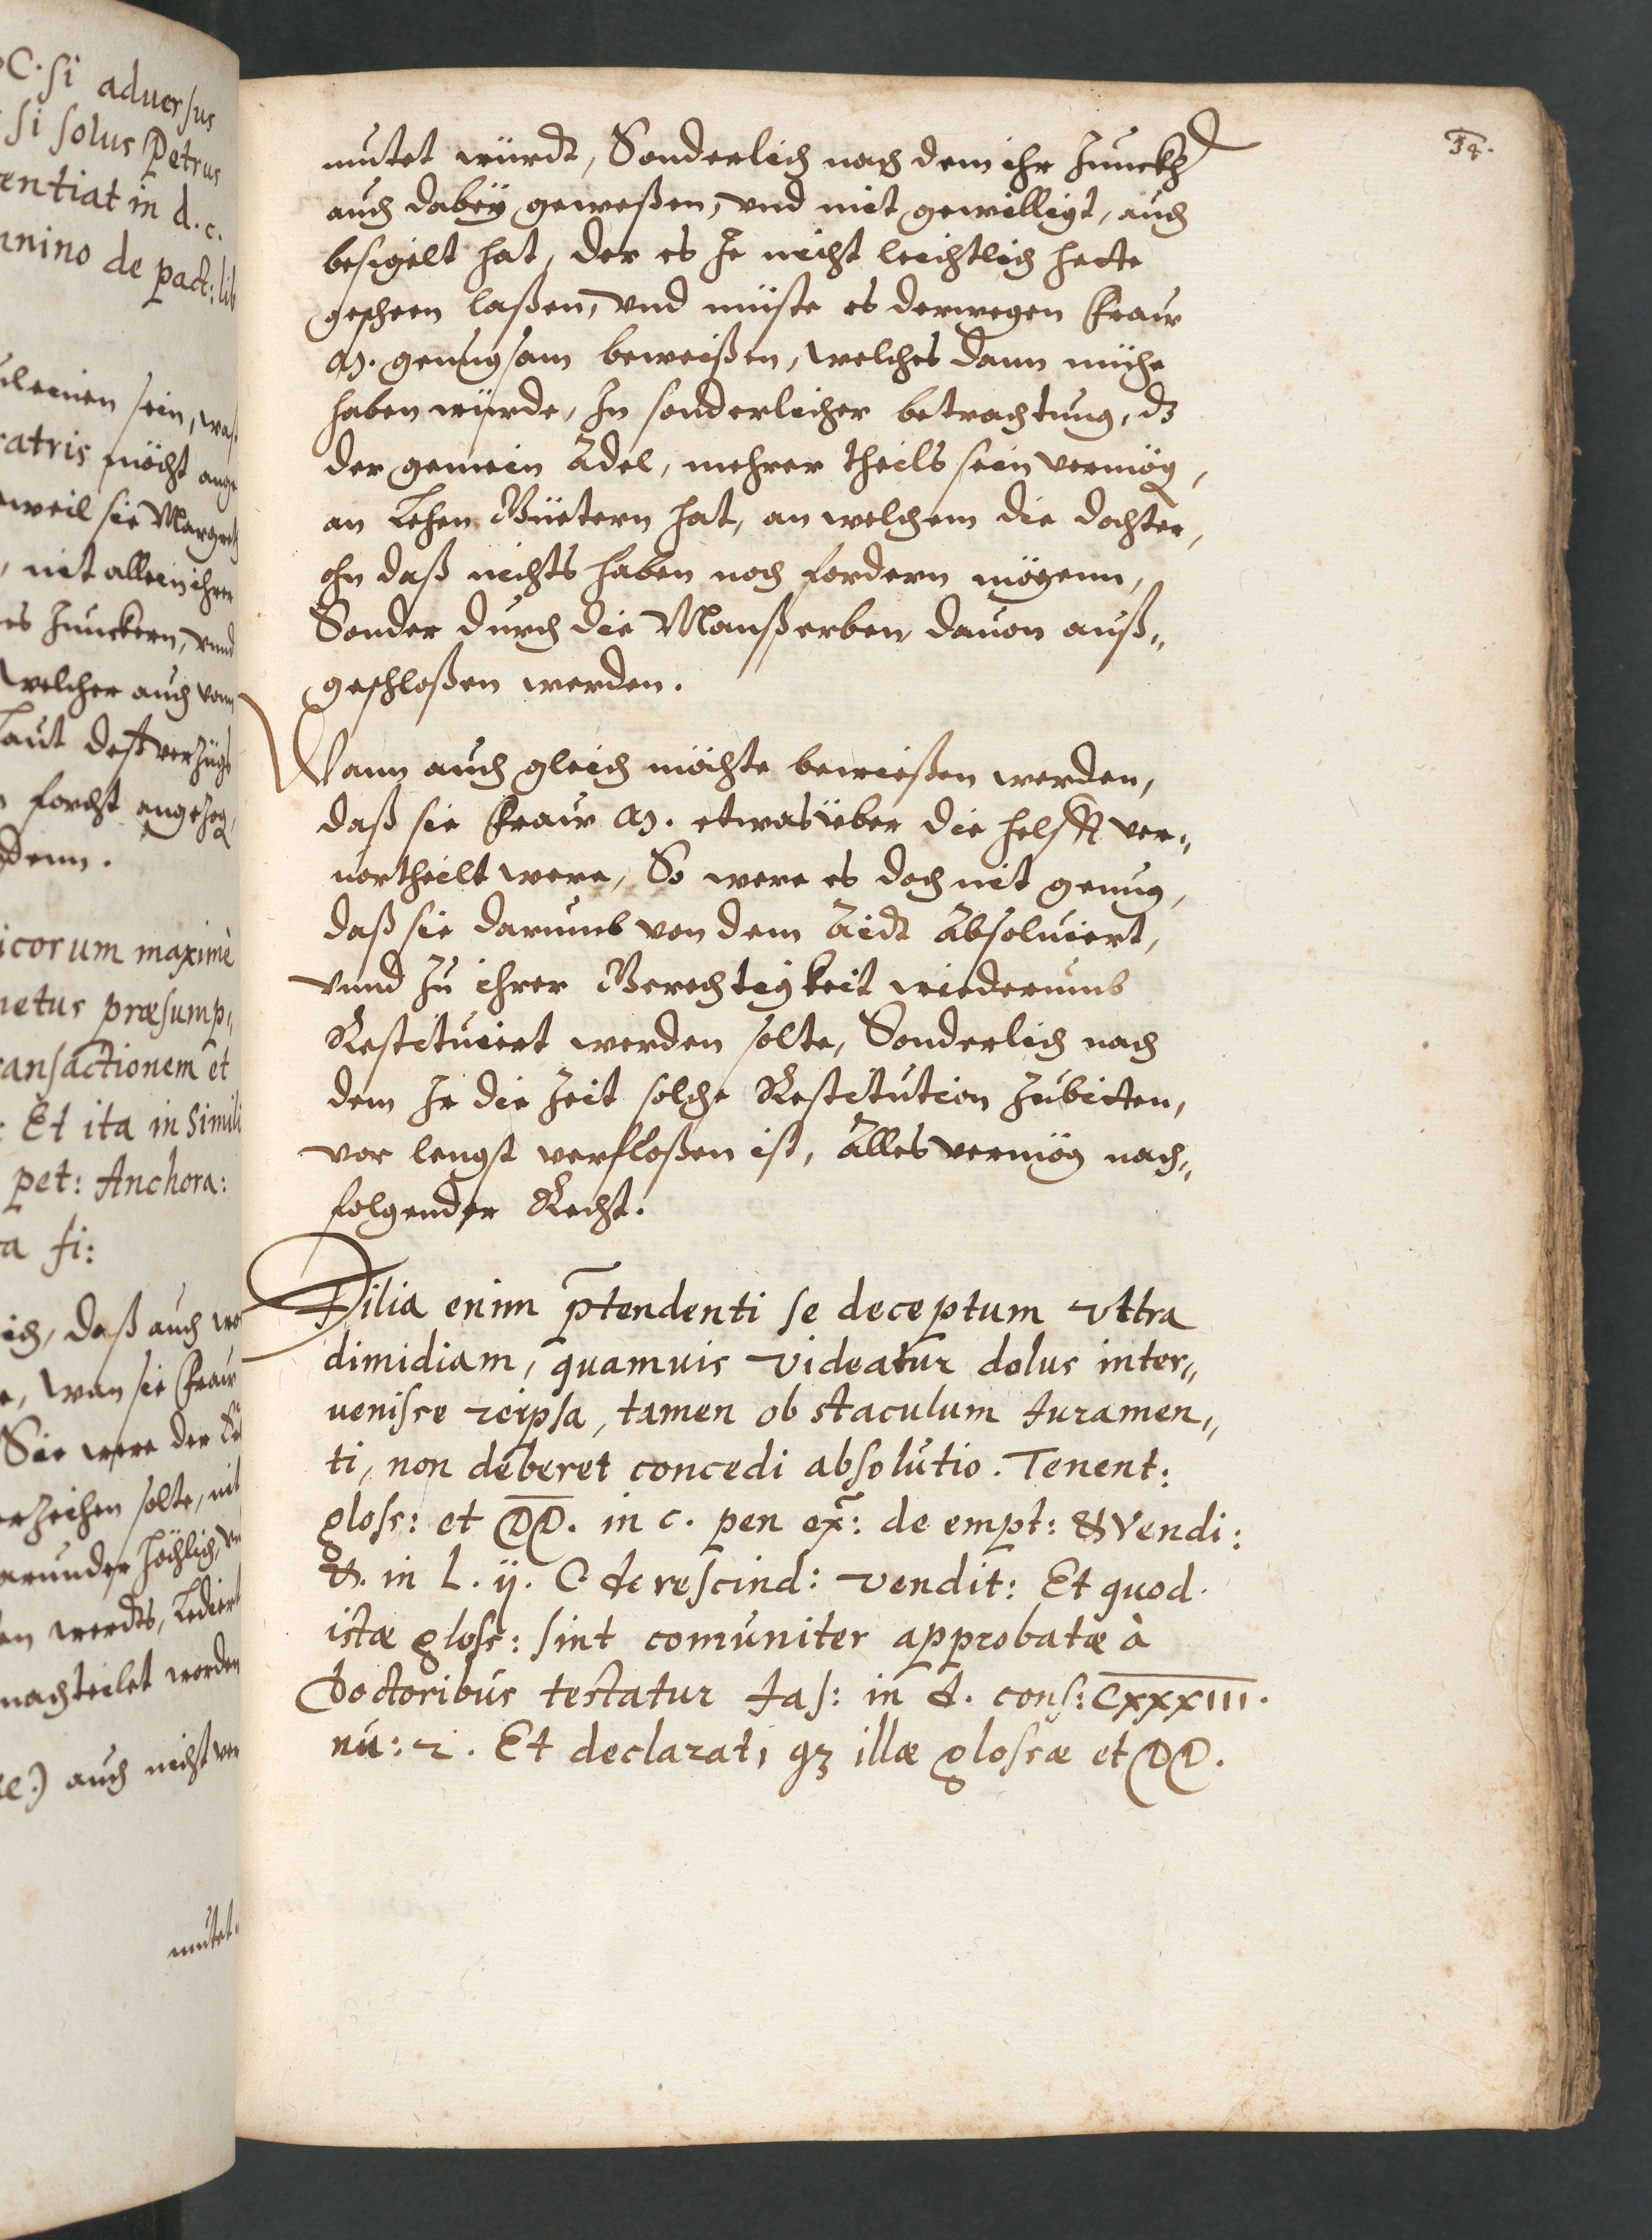 C. si aduersus
si solus Petrus
entiat in d. c.
nnino de pact: lib
sein, waß
atris möcht ange
weil sie Margreth
, nit allein ihren
es Junckern, vnd
welcher auch vom
laut deß verzügs
forcht angezog
denn.
icorum maximè
netus præsump„
ansactionem et
: Et ita in simili
pet: Anchora:
a fi:
ich, daß auch wo
e, wan sie Fraw
Sie were der
erzeihen solte, nit
arunder höchlich,
en werdts, Lediert
nachteilet worden
auch nicht ver
mutet.
54.
mutet würdt, Sonderlich nach dem ihr Junckh
auch dabey geweßen, vnd mit gewilligt, auch
besigelt hat, der es Je nicht leichtlich hette
gescheen laßen, vnd müste es derwegen Fraw
M. genugsam beweißen, welches dann mühe
haben würde, In sonderlicher betrachtung, dz
der gemein Adel, mehrer theils sein vermög,
an Lehen Güetern hat, an welchem die dochter,
ohn daß nichts haben noch fordern mögenn,
Sonder durch die Manßerben dauon auß„
geschloßen werden.
Wann auch gleich möchte bewießen werden,
daß sie Fraw M. etwas über die helfft ver„
uortheilt were, So were es doch nit genug,
daß sie darumb von dem Aidt Absoluiert,
vnnd zu ihrer Gerechtigkeit wiederumb
Restituiert werden solte, Sonderlich nach
dem Je die Zeit solche Restitution zubitten,
vor lengst verfloßen ist, Alles vermög nach„
folgender Recht.
Filia enim p̄tendenti se deceptum vltra
dimidiam, quamuis videatur dolus inter„
uenisse reipsa, tamen obstaculum Iuramen„
ti, non deberet concedi absolutio. Tenent:
gloss: et DD. in c. pen ex̄: de empt: & Vendi:
&. in L. ij. C. de rescind: vendit: Et quod
istæ gloss: sint comuniter approbatæ à
Doctoribus testatur Ias: in d. cons: CXXXIII.
nu: 2. Et declarat, qz illæ glossæ et DD.